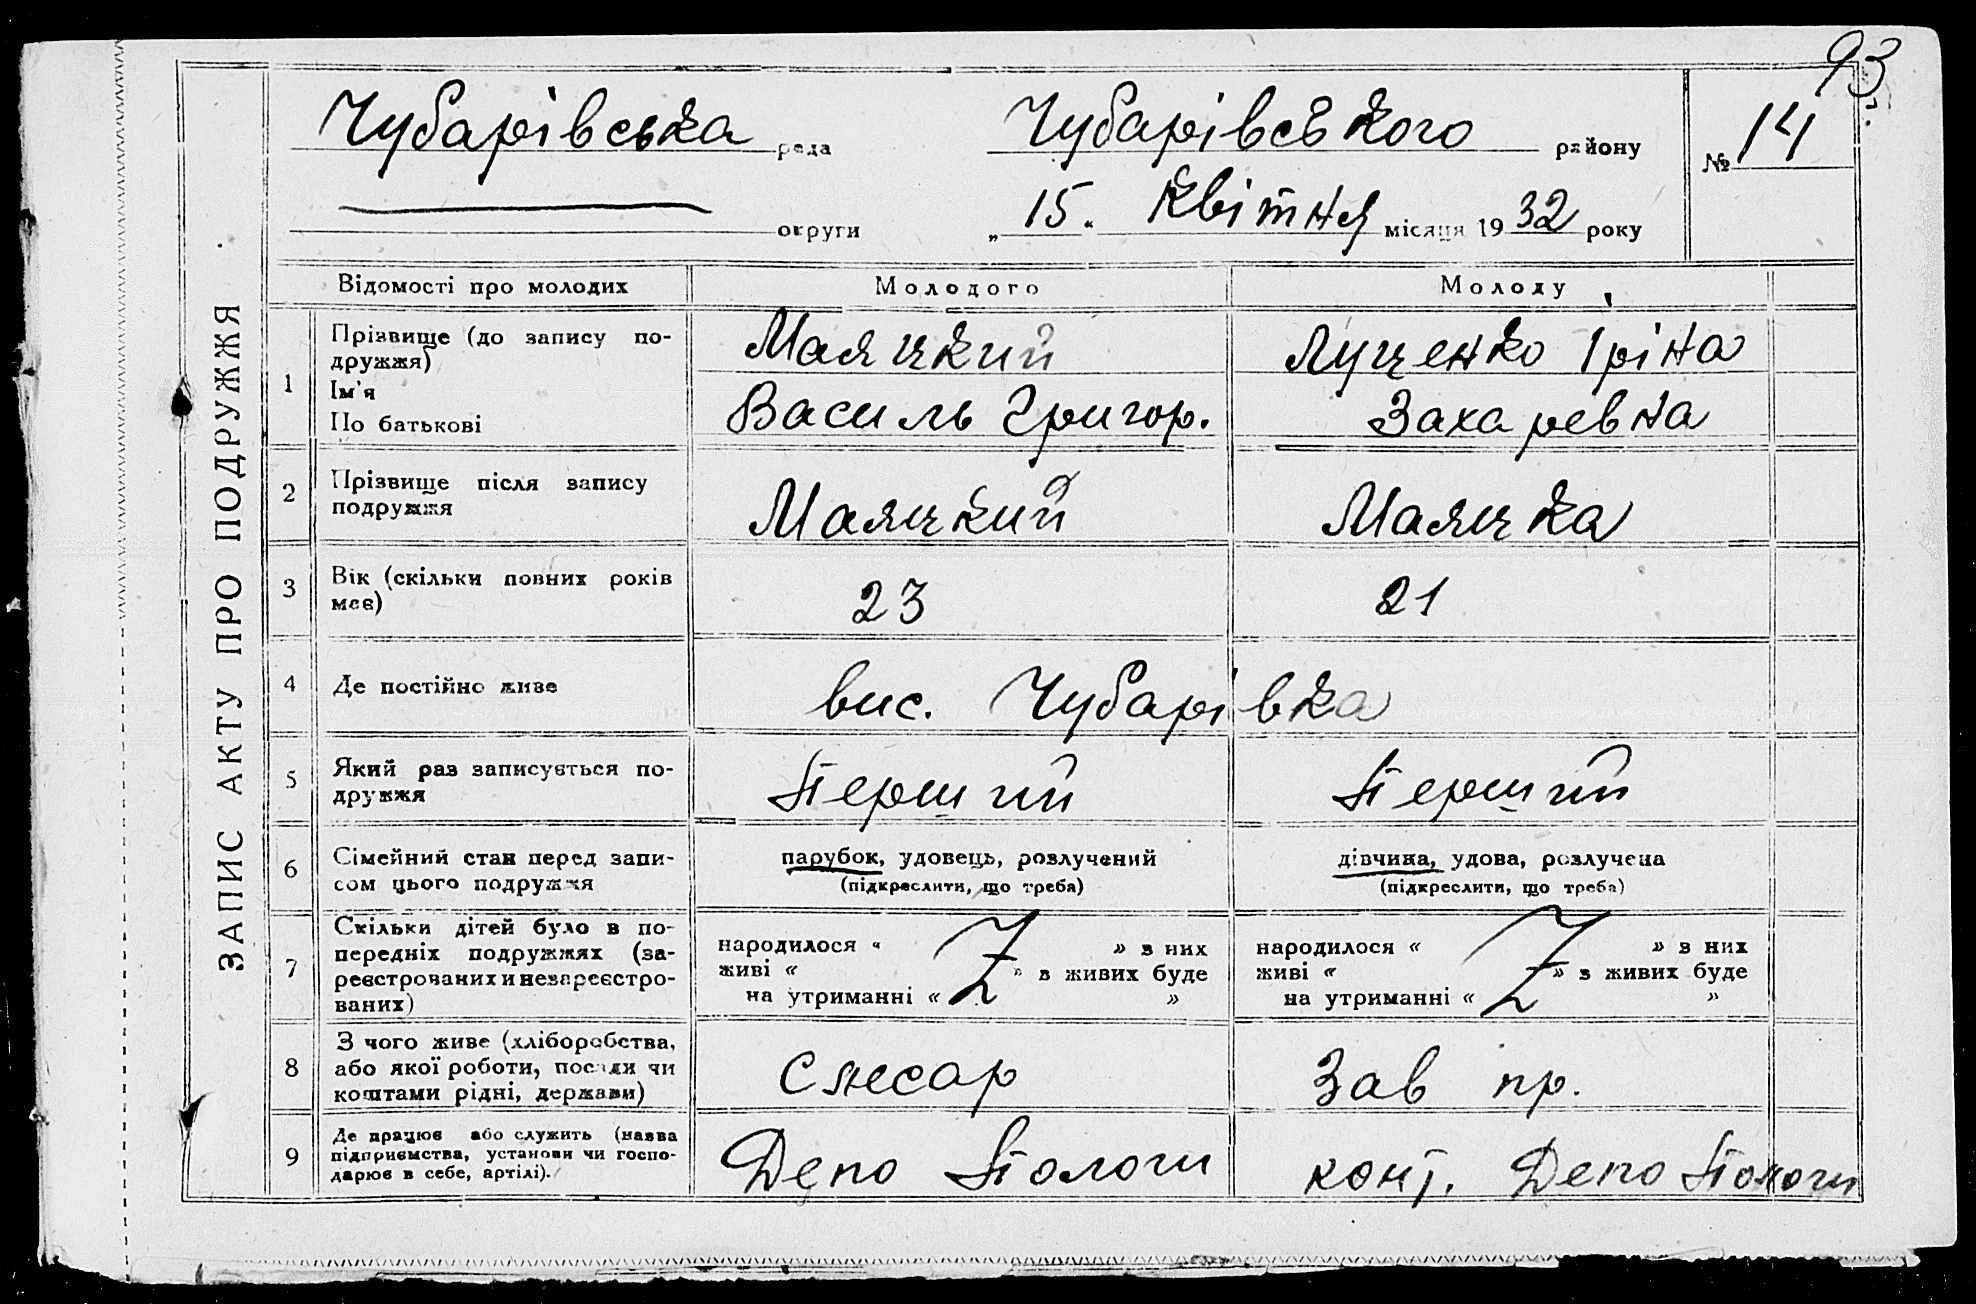 93
Чубарівська рада Чубарівського району № 14
округи „15“ Квітня місяця 1932 року
ЗАПИС АКТУ ПРО ПОДРУЖЖЯ
Відомості про молодих Молодого Молоду
1 Прізвище (до запису по-
дружжя)
Ім'я
По батькові
Маяцкий
Василь Григор.
Луценко Іріна
Захаревна
2 Прізвище після запису
подружжя
Маяцкий
Маяцка
3 Вік (скільки повних років
має)
23
21
4 Де постійно живе
вис. Чубарівка
5 Який раз записується по-
дружжя
Перший
Перший
6 Сімейний стан перед запи-
сом цього подружжя
парубок, удовець, розлучений
(підкреслити, що треба)
дівчина, удова, розлучена
(підкреслити, що треба)
7 Скільки дітей було в по-
передніх подружжях (за-
реєстрованих и незареєстро-
ваних)
народилося « Z » з них
живі « » з живих буде
на утриманні « »
народилося « Z » з них
живі « » з живих буде
на утриманні « »
8 З чого живе (хліборобства,
або якої роботи, посади чи
коштами рідні, держави)
Слесар
Зав пр.
9 Де працює або служить (назва
підприємства, установи чи госпо-
дарює в себе, артілі).
Депо Пологи
конт. Депо Пологи